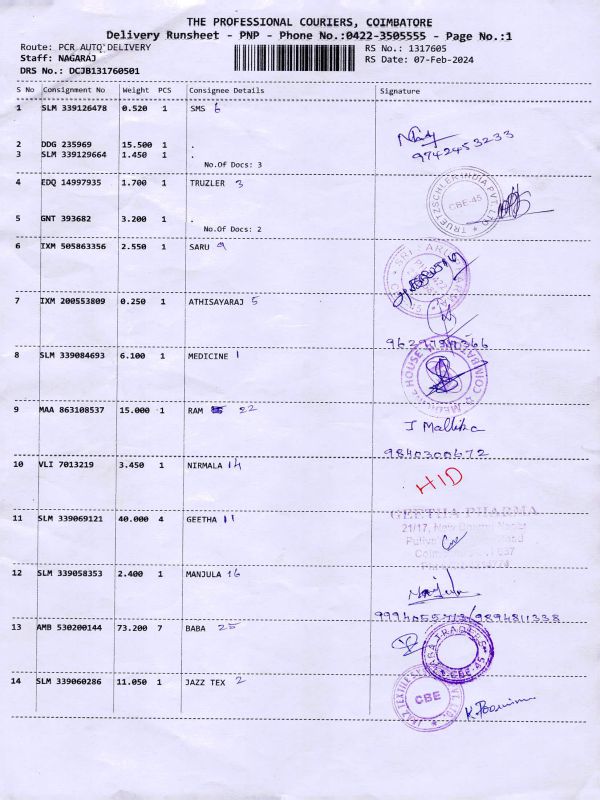 THE PROFESSIONAL COURIERS, COIMBATORE
Delivery Runsheet - PNP - Phone No.:0422-3505555 - Page No.:1
Route: PCR AUTO DELIVERY RS No.: 1317605
Staff: NAGARAJ RS Date: 07-Feb-2024
DRS No.: DCJB131760501
S No Consignment No Weight PCS Consignee Details Signature
1 SLM 339126478 0.520 1 SMS 6
2 DDG 235969 15.500 1 .
3 SLM 339129664 1.450 1 . 9742453233
No.Of Docs: 3
4 EDQ 14997935 1.700 1 TRUZLER 3
CBE-45
5 GNT 393682 3.200 1 .
No.Of Docs: 2
6 IXM 505863356 2.550 1 SARU 9
7 IXM 200553809 0.250 1 ATHISAYARAJ 5
8 SLM 339084693 6.100 1 MEDICINE 1
9 MAA 863108537 15.000 1 RAM 22
J Mallika
9840300672
10 VLI 7013219 3.450 1 NIRMALA 14
HID
GEETHA PHARMA
11 SLM 339069121 40.000 4 GEETHA 11
12 SLM 339058353 2.400 1 MANJULA 16
Manjula
13 AMB 530200144 73.200 7 BABA 25
BABA TRADERS
CBE-45
14 SLM 339060286 11.050 1 JAZZ TEX 2
CBE